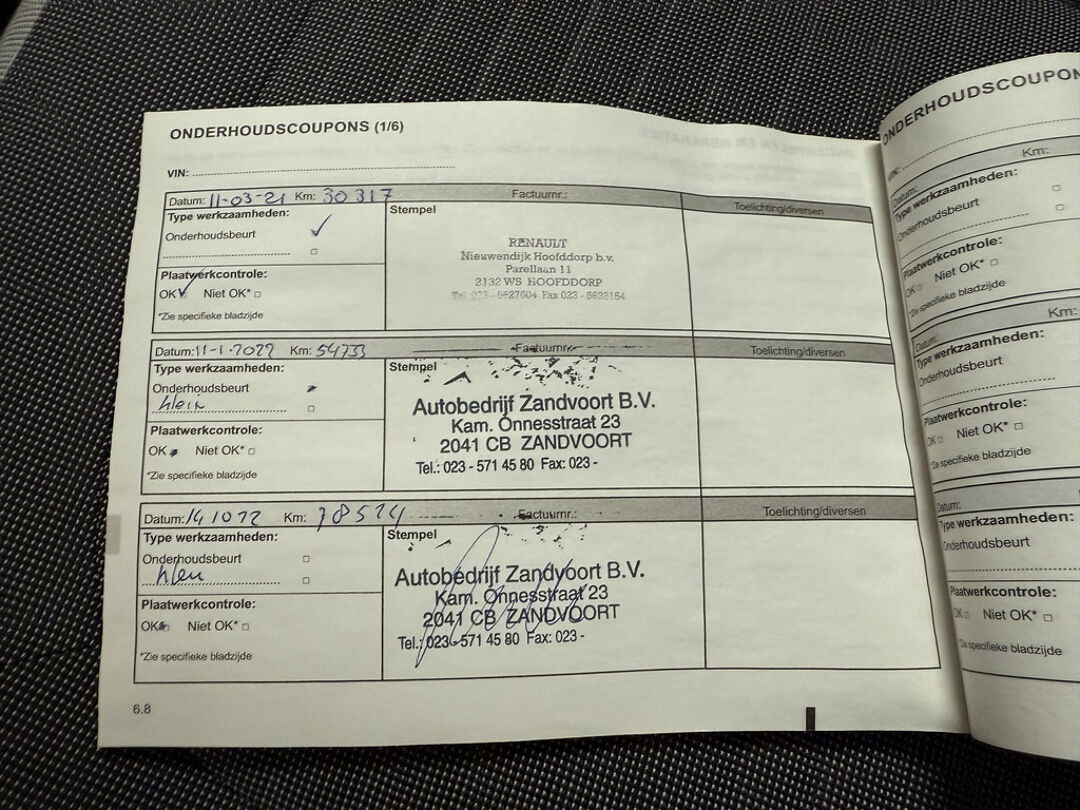 ONDERHOUDSCOUPONS (1/6)
VIN:
Datum: 11-03-21 Km: 30317 Factuurnr.: Toelichting/diversen
Type werkzaamheden:
Stempel
Onderhoudsbeurt
RENAULT
Nieuwendijk Hoofddorp b.v.
Parellaan 11
2132 WS HOOFDDORP
Tel. 023 - 5627604 Fax 023 - 5628184
Plaatwerkcontrole:
OK Niet OK*
*Zie specifieke bladzijde
Datum: 11-1-2022 Km: 54733 Factuurnr.: Toelichting/diversen
Type werkzaamheden:
Stempel
Onderhoudsbeurt
klein
Autobedrijf Zandvoort B.V.
Kam. Onnesstraat 23
2041 CB ZANDVOORT
Tel.: 023 - 571 45 80 Fax: 023 -
Plaatwerkcontrole:
OK Niet OK*
*Zie specifieke bladzijde
Datum: 141022 Km: 78514 Factuurnr.: Toelichting/diversen
Type werkzaamheden:
Stempel
Onderhoudsbeurt
Autobedrijf Zandvoort B.V.
Kam. Onnesstraat 23
2041 CB ZANDVOORT
Tel.: 023 - 571 45 80 Fax: 023 -
Plaatwerkcontrole:
OK Niet OK*
*Zie specifieke bladzijde
6.8
ONDERHOUDSCOUPON
VIN:
Datum: Km:
Type werkzaamheden:
Onderhoudsbeurt
Plaatwerkcontrole:
OK Niet OK*
*Zie specifieke bladzijde
Datum: Km:
Type werkzaamheden:
Onderhoudsbeurt
Plaatwerkcontrole:
OK Niet OK*
*Zie specifieke bladzijde
Datum:
Type werkzaamheden:
Onderhoudsbeurt
Plaatwerkcontrole:
OK Niet OK*
*Zie specifieke bladzijde